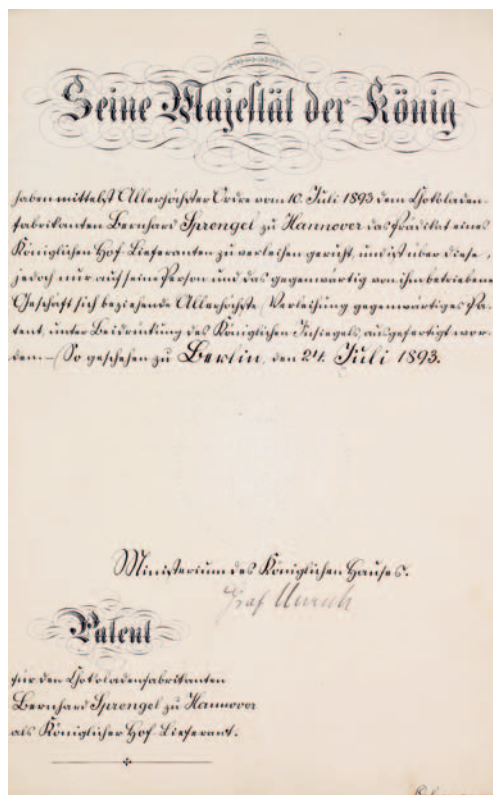 Seine Majestät der König
haben mittelst Allerhöchster Ordre vom 10. Juli 1893 dem Chokoladen-
fabrikanten Bernhard Sprengel zu Hannover das Prädikat eines
Königlichen Hof-Lieferanten zu verleihen geruht, und ist über diese,
jedoch nur auf seine Person und das gegenwärtig von ihm betriebene
Geschäft sich beziehende Allerhöchste Verleihung gegenwärtiges Pa-
tent, unter Beidrückung des Königlichen Insiegels, ausgefertigt wor-
den. — So geschehen zu Berlin, den 24. Juli 1893.
Ministerium des Königlichen Hauses.
Graf
Patent
für den Chokoladenfabrikanten
Bernhard Sprengel zu Hannover
als Königlicher Hof-Lieferant.